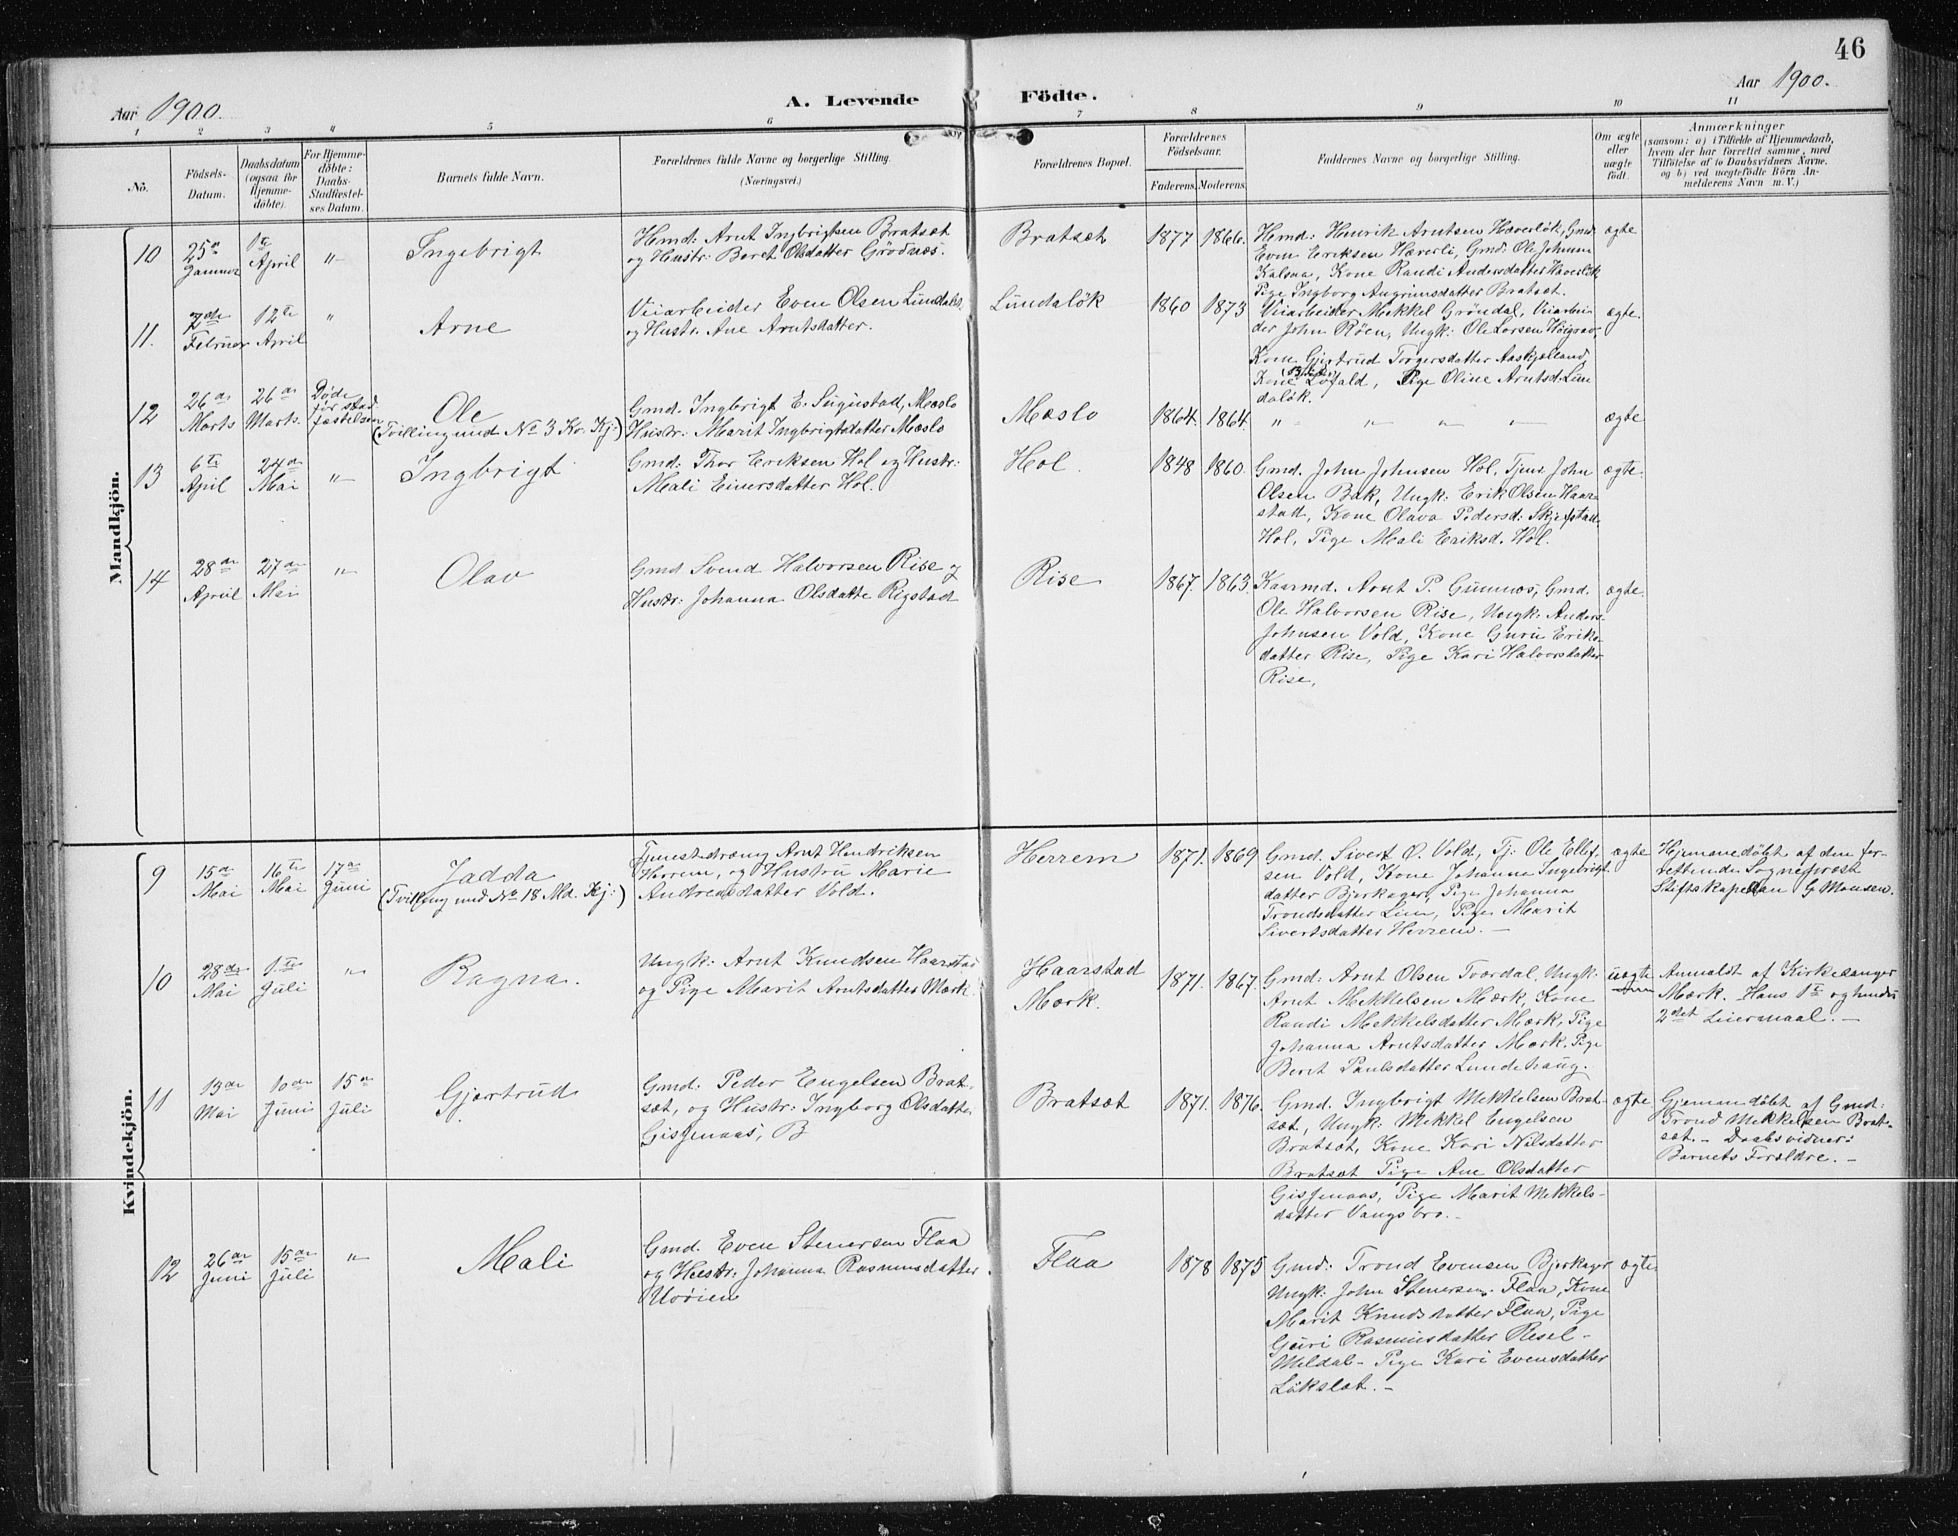 46
Aar 1900.
A. Levende Födte.
Aar 1900.
1 2 3 4 5 6 7 8 9 10 11
No.
Födsels-
Datum.
Daabsdatum
(ogsaa for
Hjemme-
döbte).
For Hjemme-
döbte:
Daabs-
Stadfæstel-
ses Datum.
Barnets fulde Navn.
Forældrenes fulde Navne og borgerlige Stilling.
(Næringsvei.)
Forældrenes Bopæl.
Forældrenes
Födselsaar.
Faderens. Moderens.
Faddernes Navne og borgerlige Stilling.
Om ægte
eller
uægte
födt.
Anmærkninger
(saasom: a) i Tilfælde af Hjemmedaab,
hvem der har forrettet samme, med
Tilföielse af to Daabsvidners Navne.
og b) ved uægtefödte Börn An-
melderens Navn m. V.)
Mandkjön.
10
25de
Januar
1ste
April
"
Ingebrigt
Gmd: Arnt Ingbrigtsen Bratsæt
og Hustr: Beret Olsdatter Grödnæs.
Bratsæt
1877
1866.
Gmd: Henrik Arntsen Haverlök, Gmd
Even Eriksen Hæverli, Gmd: Ole Johnsen
Kalena, Kone Randi Andersdatter Haverlök
Pige Ingborg Angrimsdatter Bratset.
ægte
11.
2den
Februar
12te
April
"
Arne
Veiarbeider Even Olsen Lundalök
og Hustr. Ane Arntsdatter.
Lundalök
1860
1873
Veiarbeider Mekkel Gröndal, Veiarbei
der John Röen, Ungk: Ole Larsen Höigrav,
Kone Gjertrud Torgersdatter Aaskjælland
Kone Löfald, Pige Oline Arntsd. Lun
dalök.
ægte.
12
26de
Marts
26de
Marts.
Döde
för stad
fæstelsen
Ole
(Tvilling med No 3 Kv. Kj:)
Gmd. Ingbrigt E. Sugustad, Mæslo
Hustr: Marit Ingbrigtsdatter Mæslo
Mæslo
1864.
1864.
" " " "
ægte
13
6te
April
24de
Mai
"
Ingbrigt
Gmd: Thor Eriksen Hol og Hustr:
Mali Einersdatter Hol.
Hol.
1848
1860.
Gmd. John Johnsen Hol, Tjen: John
Olsen Bak, Ungk: Erik Olsen Haar-
stad, Kone Olava Pedersd: Skjefstad,
Hol, Pige Mali Eriksd. Hol.
ægte.
14
28de
April
27de
Mai
"
Olav
Gmd Svend Halvorsen Rise og
Hustr: Johanna Olsdatte Rigstad
Rise
1867.
1863.
Kaarmd. Arnt P. Gunnes, Gmd.
Ole Halvorsen Rise, Ungk: Anders
Johnsen Vold, Kone Guru Eriks
datter Rise, Pige Kari Halvorsdatter
Rise,
ægte.
Kvindekjön.
9
15de
Mai
16te
Mai
17de
Juni
Jadda
(Tvilling med No 18 Md. Kj:)
Tjenestedræng Arnt Hendriksen
Herrem, og Hustru Marie
Andreasdatter Vold.
Herrem
1871.
1869
Gmd. Sivert O. Vold, Tj: Ole Ellef-
sen Vold, Kone Johanna Ingebrigt
datter Bjerkager, Pige Johanna
Trondsdatter Lien, Pige Marit
Sivertsdatter Herrem. —
ægte
Hjemmedöbt af den for-
rettende Sogneprest
Stiftskapellan G Monsen.
10
28de
Mai
1ste
Juli
"
Ragna.
Ungk: Arnt Knudsen Haarstad
og Pige Marit Arntsdatter Mærk.
Haarstad
Mærk.
1871.
1867.
Gmd: Arnt Olsen Tværdal, Ungk:
Arnt Mekkelsen Mærk, Kone
Randi Mekkelsdatter Mærk, Pige
Johanna Arntsdatter Mærk, Pige
Beret Paulsdatter Lundehaug.
uægte
Anmeldt af Kirkesanger
Mærk. Hans 1ste og hendes
2det Leiermaal. —
11
13de
Mai
10de
Juni
15de
Juli
Gjertrud
Gmd: Peder Engelsen Brat-
sæt, og Hustr: Ingborg Olsdatter
Gisjenaas, B
Bratsæt
1871.
1876.
Gmd. Ingbrigt Mekkelsen Brat-
sæt, Ungk: Mekkel Engelsen
Bratsæt, Kone Kari Nilsdatter
Bratsæt Pige Ane Olsdatter
Gisjenaas, Pige Marit Mekkels-
datter Vangsbro. —
ægte
Hjemmedöbt af Gmd:
Trond Mekkelsen Brat-
sæt. — Daabsvidner:
Barnets Forældre. —
12
26de
Juni
15de
Juli
"
Mali
Gmd. Even Stenersen Flaa
og Hustr: Johanna Rasmusdatter
Uoöien
Flaa
1878
1875
Gmd: Trond Evensen Bjerkager
Ungk: John Stenersen Flaa, Kone
Marit Knudsdatter Flaa, Pige
Guri Rasmusdatter Resel-
Meldal — Pige Kari Evensdatter
Lökslæt. —
ægte